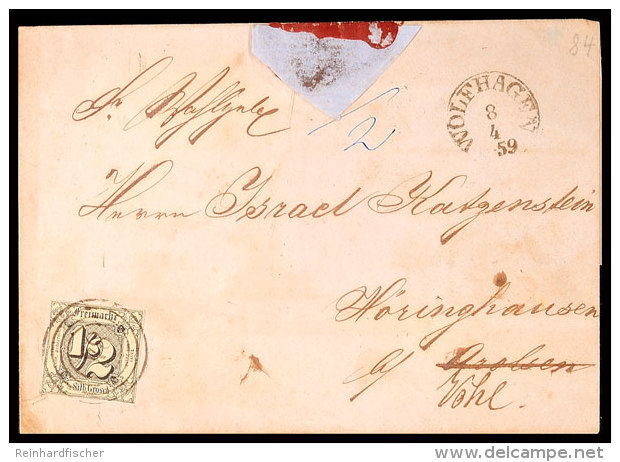 84
WOLFHAGEN
8
4
59
1/2
Herrn Israel Katzenstein
Höringhausen
a/ Arolsen
Vöhl.
Freimarke
1/2
Silb. Grosch
Reinhardfischer
http://www.delcampe.net